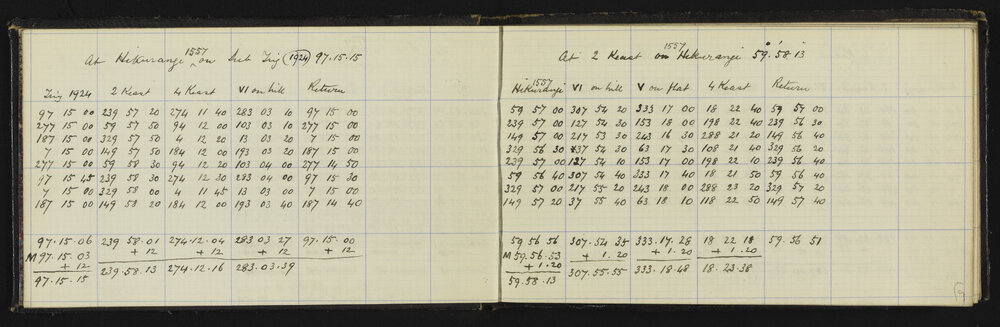 1557
At Hikurangi on Sub Trig 1924 97.15.15
Trig 1924 2 Keast 4 Keast VI on hill Return
97 15 00 239 57 20 274 11 40 283 03 10 97 15 00
277 15 00 59 57 50 94 12 00 103 03 10 277 15 00
187 15 00 329 57 50 4 12 20 13 03 20 7 15 00
7 15 00 149 57 50 184 12 00 193 03 20 187 15 00
277 15 00 59 58 30 94 12 20 103 04 00 277 14 50
97 15 45 239 58 30 274 12 30 283 04 00 97 15 30
7 15 00 329 58 00 4 11 45 13 03 00 7 15 00
187 15 00 149 58 20 184 12 00 193 03 40 187 14 40
97.15.06 239 58.01 274.12.04 283 03 27 97.15.00
M 97.15.03 + 12 + 12 + 12 + 12
+ 12 239.58.13 274.12.16 283.03.39
97.15.15
1557
At 2 Keast on Hikurangi 59° 58' 13
1557
Hikurangi VI on hill V on flat 4 Keast Return
59 57 00 307 54 20 333 17 00 18 22 40 59 57 00
239 57 00 127 54 30 153 18 00 198 22 40 239 56 30
149 57 00 217 53 30 243 16 30 288 21 20 149 56 40
329 56 30 37 54 30 63 17 30 108 21 40 329 56 20
239 57 00 127 54 10 153 17 00 198 22 10 239 56 40
59 56 40 307 54 40 333 17 40 18 21 50 59 56 40
329 57 00 217 55 20 243 18 00 288 23 20 329 57 20
149 57 20 37 55 40 63 18 10 118 22 50 149 57 40
59 56 56 307.54 35 333.17.28 18 22 18 59.56 51
M 59.56.53 + 1.20 + 1.20 + 1.20
+ 1.20 307.55.55 333.18.48 18.23.38
59.58.13